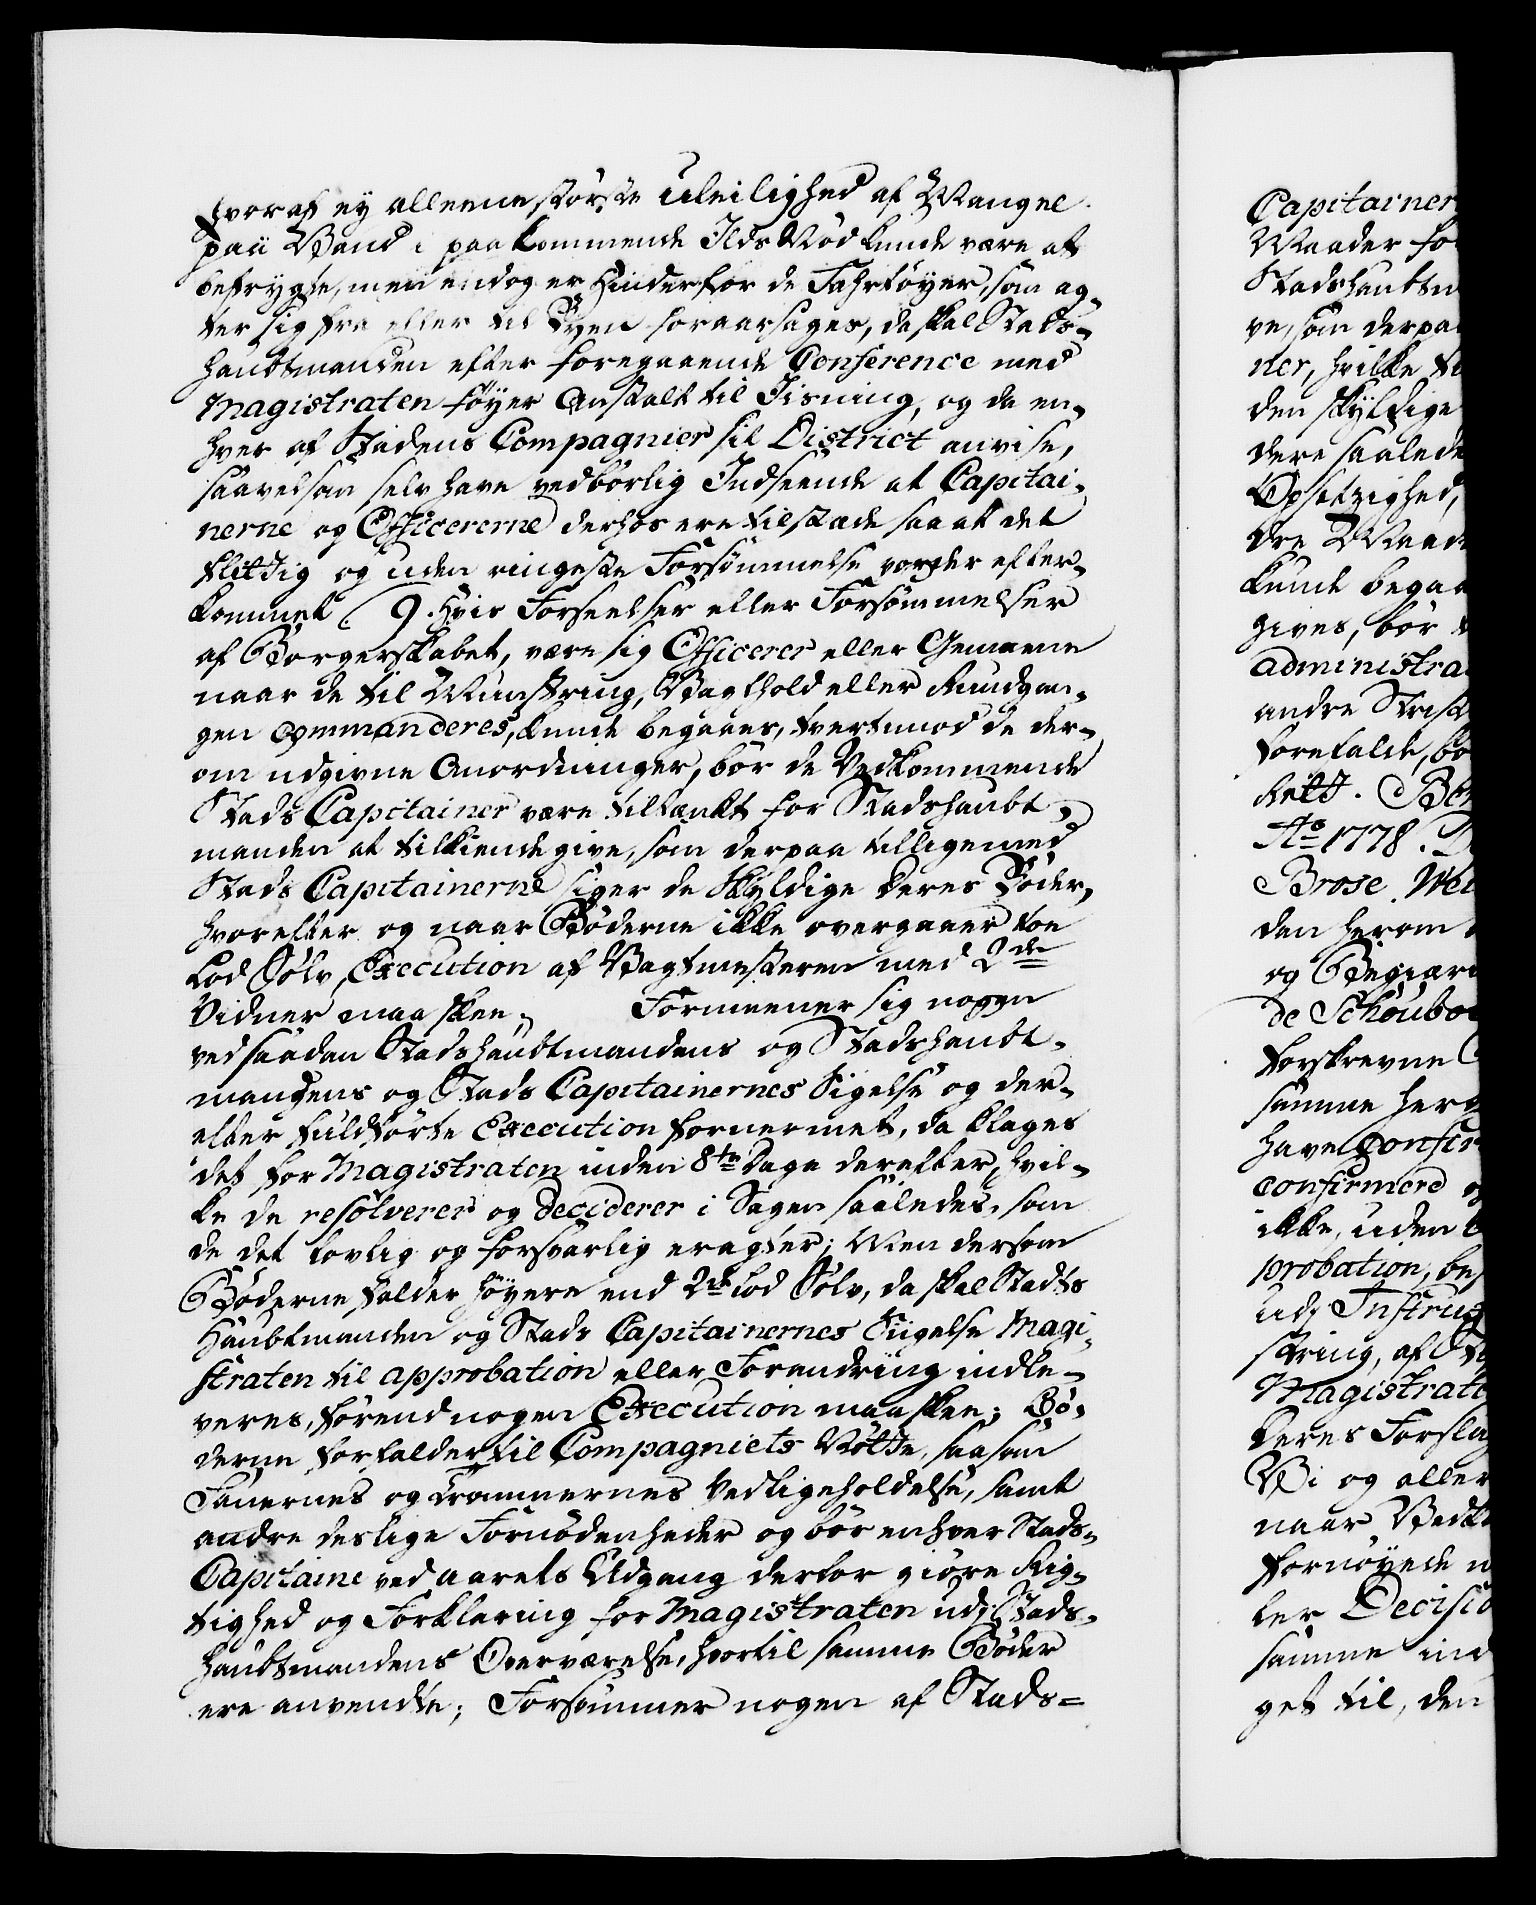 hvoraf ey alleene största Uleilighed af Mangel
paa Vand i paakommende Ilds Nöd kunde være at
befrygte, men endog er Hinder for de Fahrtöyer, som ag-
ter sig fra eller til Byen foraarsages, da skal Stads-
hauptmanden efter foregaaende Conference med
Magistraten föyer Anstalt til Iisning, og da en-
hver af Stadens Compagnier sit District anvise,
saavelsom selv have vedbörlig Indseende at Capitai-
nerne og Officererne derhos ere tilstæde saa at det
flittig og uden ringeste Forsömmelse vorder efter-
kommet. 9. Hvis Forseelser eller Forsömmelser
af Borgerskabet, være sig Officerer eller Gemeene
naar de til Munstring, Vagthold eller Rundgan-
gen commanderes, kunde begaaes, tvertimod de der-
om udgivne Anordninger, bör de Vedkommende
Stads Capitainer være tiltænkt for Stadshaubt-
manden at tilkiendegive, som derpaa tilligemed
Stads Capitainerne siger de Skyldige deres Böder,
hvorefter og naar Böderne ikke overgaaer toe
Lod Sölv, Execution af Vagtmesteren med 2de
Vidner maa skee, Formeener sig nogen
ved saadan Stadshaubtmandens og Stadshaubt-
mandens og Stads Capitainernes Sigelse og der-
efter fuldförte Execution fornermet, da klages
det for Magistraten inden 8te Dage derefter, hvil-
ke da resolverer og deciderer i Sagen saaledes, som
de det lovlig og forsvarlig eragter; Men dersom
Böderne falder höyere end 2de Lod Sölv, da skal Stadts
Haubtmanden og Stads Capitainernes Siigelse Magi-
straten til approbation eller Forandring indle-
veres, förend nogen Execution maa skee; Bö-
derne forfalder til Compagniets Nötte, saasom
Fanernes og Trommernes Vedligeholdelse, samt
andre deslige Fornödenheder og bör enhver Stads-
Capitaine ved Aarets Udgang derfor giöre Rig-
tighed og Forklaring for Magistraten udi Stads-
Haubtmandens Overværelse, hvortil samme Böder
ere anvendte; Forsömmer nogen af Stads=
Capitainer
Maader fo
Stadshaubtm
ve, som derpaa
ner, hvilke ti
den skyldige
dere saalede
Opsetzighed,
dre Maad
kunde begaa
gives, bör
administra
andre Strid
forefalde, bö
Rett. Be
Ao 1778.
Brose. We
den herom
og Begiæri
de Schoubo
forskrevne
samme her
have confir
confirmere og
ikke, uden
probation, be
udi Instrux
string, af
Magistrat
deres Forslag
Vi og aller
naar Vedk
fornöyede
ler Decisio
samme ind
get til, den